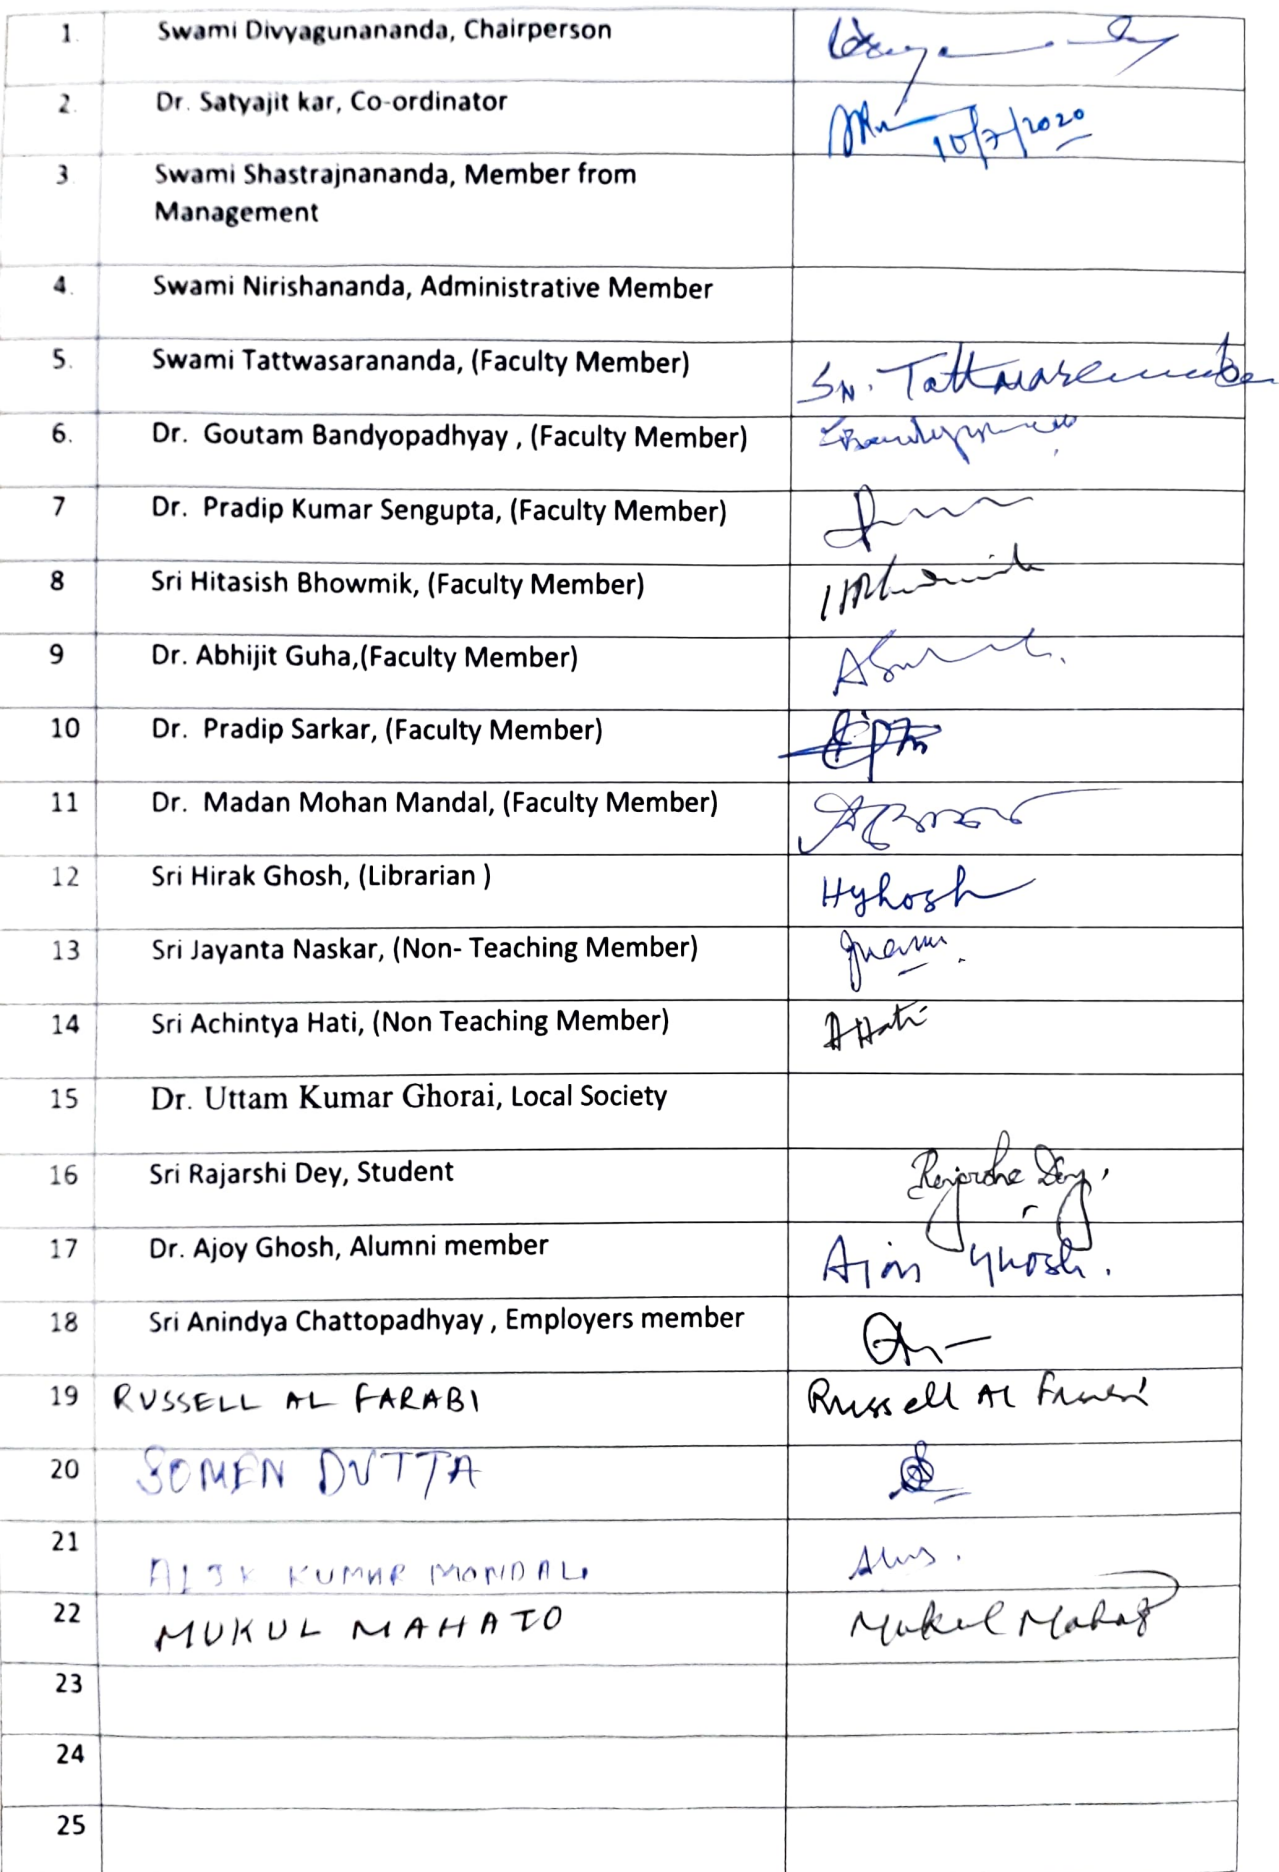 1. Swami Divyagunananda, Chairperson
2. Dr. Satyajit kar, Co-ordinator 10/7/2020
3 Swami Shastrajnananda, Member from
Management
4. Swami Nirishananda, Administrative Member
5. Swami Tattwasarananda, (Faculty Member)
6. Dr. Goutam Bandyopadhyay , (Faculty Member)
7 Dr. Pradip Kumar Sengupta, (Faculty Member)
8 Sri Hitasish Bhowmik, (Faculty Member)
9 Dr. Abhijit Guha,(Faculty Member)
10 Dr. Pradip Sarkar, (Faculty Member)
11 Dr. Madan Mohan Mandal, (Faculty Member)
12 Sri Hirak Ghosh, (Librarian ) HGhosh
13 Sri Jayanta Naskar, (Non- Teaching Member)
14 Sri Achintya Hati, (Non Teaching Member) AHati
15 Dr. Uttam Kumar Ghorai, Local Society
16 Sri Rajarshi Dey, Student Rajarshi Dey
17 Dr. Ajoy Ghosh, Alumni member Ajoy Ghosh.
18 Sri Anindya Chattopadhyay , Employers member
19 RUSSELL AL FARABI Russell Al Farabi
20 SOMEN DUTTA
21 KUMAR MONDAL
22 MUKUL MAHATO Mukul Mahato
23
24
25